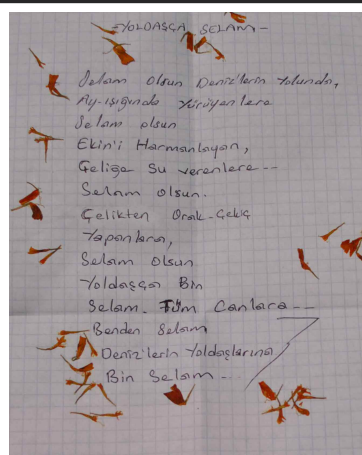 -YOLDAŞÇA SELAM-
Selam Olsun Deniz'lerin Yolunda,
Ay-ışığında Yürüyenlere
Selam olsun
Ekin'i Harmanlayan,
Çeliğe Su verenlere--
Selam Olsun.
Çelikten Orak-Çekiç
Yapanlara,
Selam Olsun
Yoldaşça Bin
Selam. Tüm Canlara---
Benden Selam
Deniz'lerin Yoldaşlarına
Bin Selam---